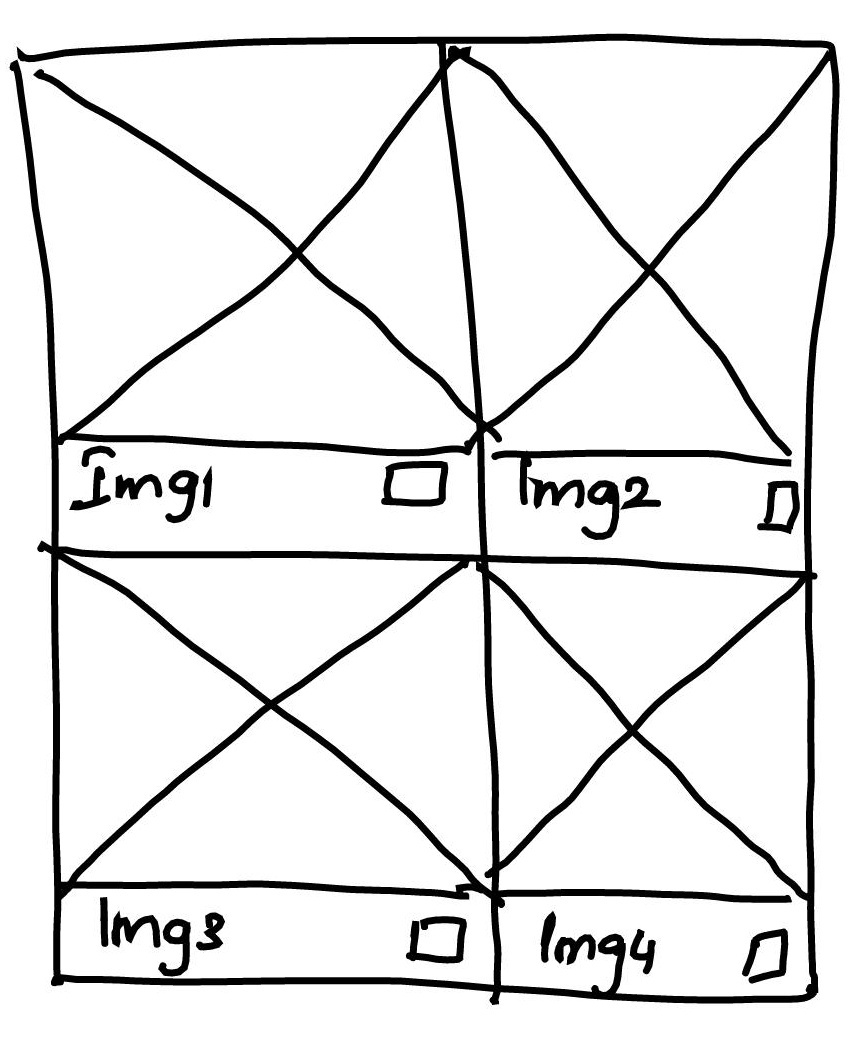 Img1
Img2
Img3
Img4